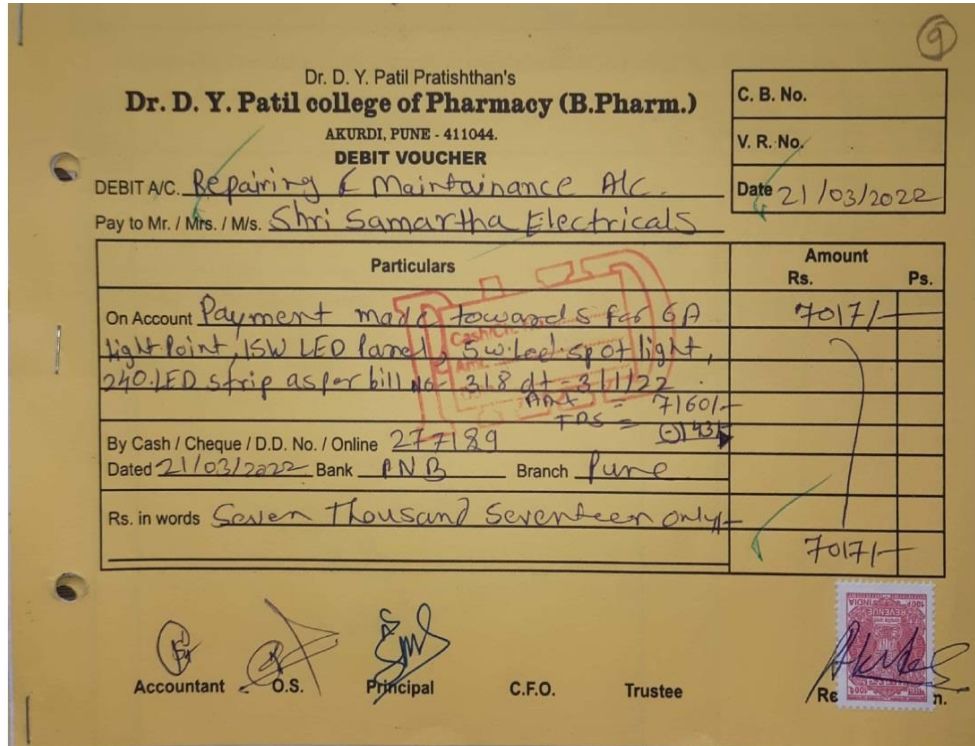 9
Dr. D. Y. Patil Pratishthan's
Dr. D. Y. Patil college of Pharmacy (B.Pharm.)
AKURDI, PUNE - 411044.
DEBIT VOUCHER
C. B. No.
V. R. No.
Date 21/03/2022
DEBIT A/C. Repairing & Maintainance A/c.
Pay to Mr. / Mrs. / M/s. Shri Samartha Electricals
Particulars Amount
Rs. Ps.
On Account Payment made towards for 6A 7017/-
light Point, 15W LED Panel, 5w.led spot light,
240.LED strip as per bill no- 318 dt-3/1/22.
Amt = 7160/-
TDS = (-)143/-
By Cash / Cheque / D.D. No. / Online 277189
Dated 21/03/2022 Bank PNB Branch Pune
Rs. in words Seven Thousand Seventeen only/-
7017/-
Accountant O.S. Principal C.F.O. Trustee
REVENUE
INDIA